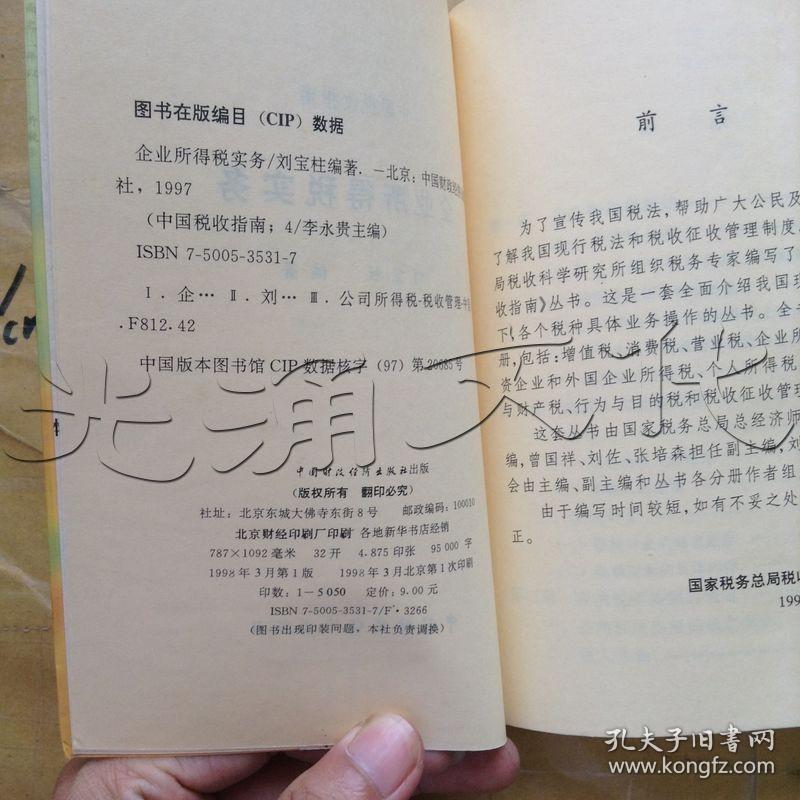 图书在版编目（CIP）数据
企业所得税实务/刘宝柱编著．－北京：中国财政
社，1997
（中国税收指南；4/李永贵主编）
ISBN 7-5005-3531-7
Ⅰ．企… Ⅱ．刘… Ⅲ．公司所得税-税收管理-中
.F812.42
中国版本图书馆 CIP 数据核字（97）第 20685号
中国财政经济出版社出版
（版权所有 翻印必究）
社址：北京东城大佛寺东街8号 邮政编码：100010
北京财经印刷厂印刷 各地新华书店经销
787×1092毫米 32开 4.875印张 95 000字
1998年3月第1版 1998年3月北京第1次印刷
印数：1－5 050 定价：9.00元
ISBN 7-5005-3531-7/F·3266
（图书出现印装问题，本社负责调换）
前 言
为了宣传我国税法，帮助广大公民及
了解我国现行税法和税收征收管理制度，
局税收科学研究所组织税务专家编写了
收指南》丛书。这是一套全面介绍我国现
下，各个税种具体业务操作的丛书。全
册，包括：增值税、消费税、营业税、企业所
资企业和外国企业所得税、个人所得税
与财产税、行为与目的税和税收征收管理
这套丛书由国家税务总局总经济师
编，曾国祥、刘佐、张培森担任副主编，刘
会由主编、副主编和丛书各分册作者组
由于编写时间较短，如有不妥之处
正。
国家税务总局税收
199
光涌文化
孔夫子旧书网
www.kongfz.com